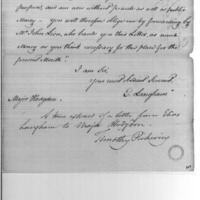 purposes, and am now without private as well as public
Money - you will therefore oblige me by forwarding by
Mr. John Lion, who hands you this Letter, as much
Money as you think necessary for this place for the
present Month"
I am Sir,
Your most Obedient Servant
E. Langham
Major Hodgdon
A true extract of a letter from Elias
Langham to Major Hodgdon
Timothy Pickering